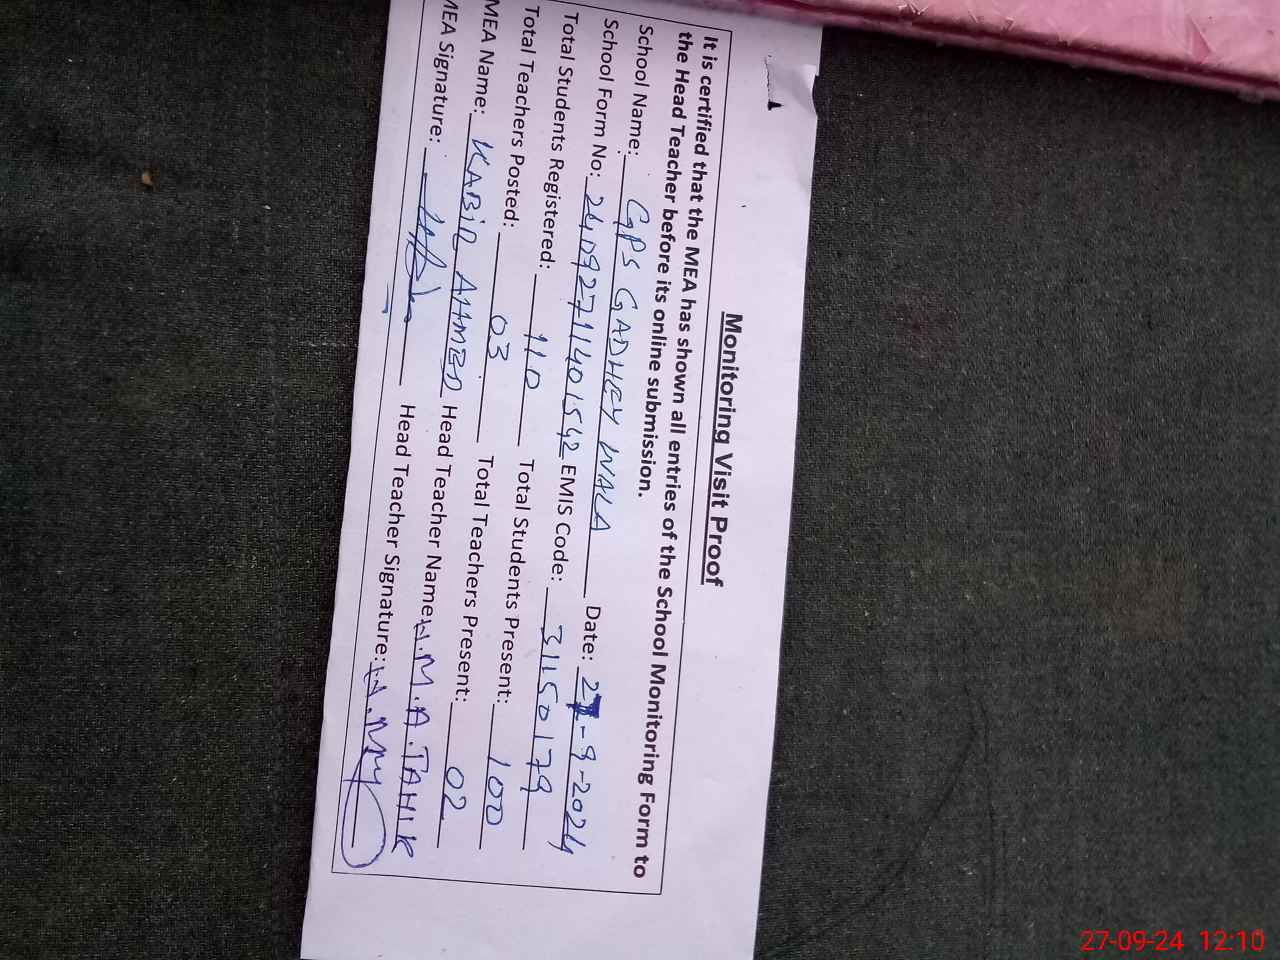 Monitoring Visit Proof
It is certified that the MEA has shown all entries of the School Monitoring Form to
the Head Teacher before its online submission.
School Name: GPS GADHEY WALA Date: 27-9-2024
School Form No: 24092711401542 EMIS Code: 31150179
Total Students Registered: 110 Total Students Present: 100
Total Teachers Posted: 03 Total Teachers Present: 02
MEA Name: KABIR AHMED Head Teacher Name: H.M.A.TAHIR
MEA Signature: Head Teacher Signature:
27-09-24 12:10